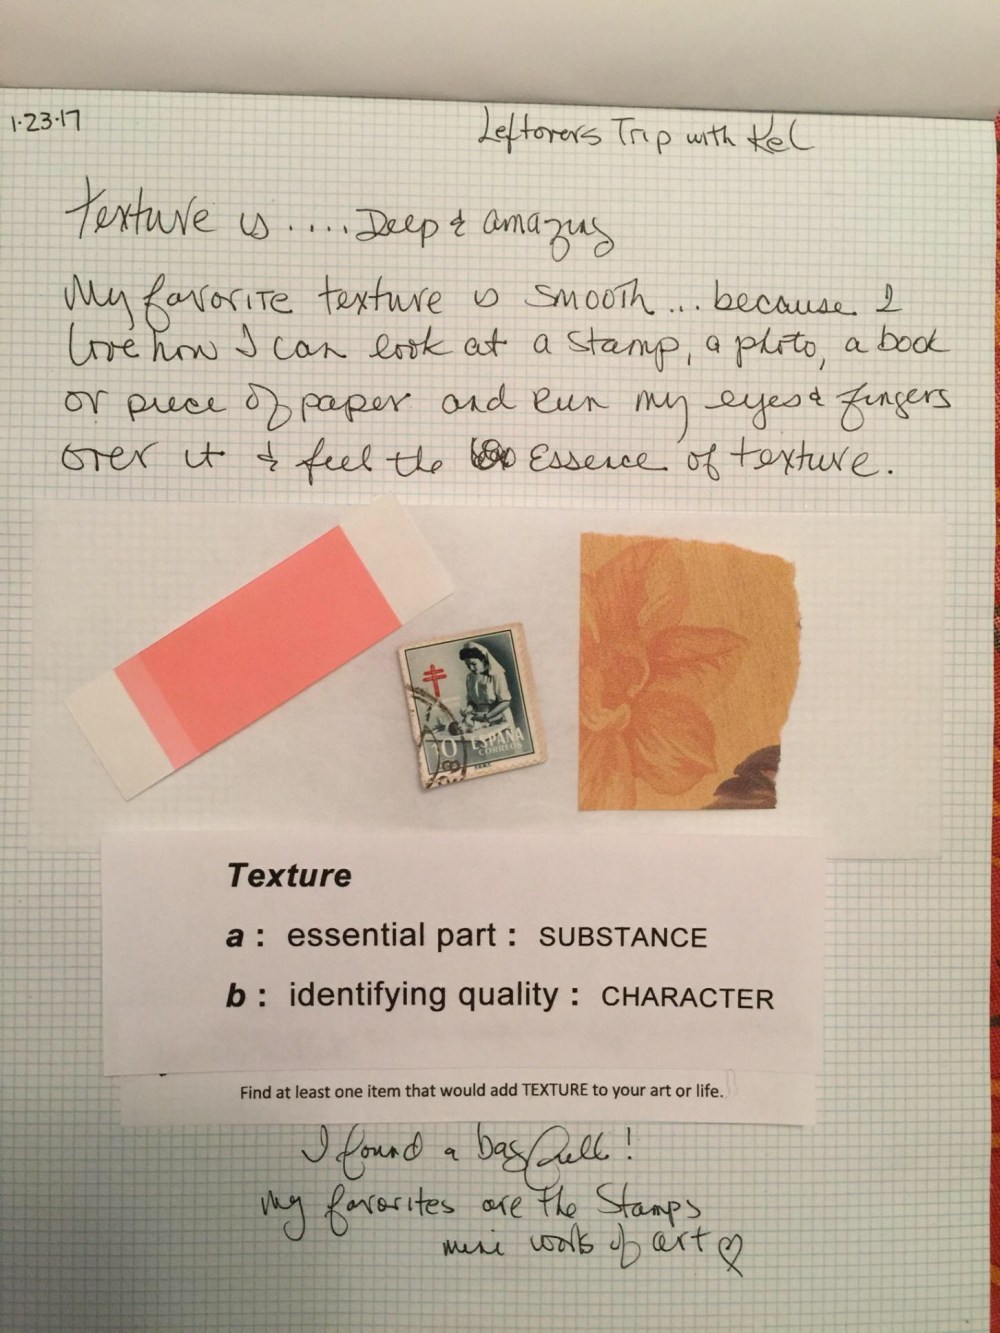 1·23·17
Leftovers Trip with Kel
Texture is ..... Deep & amazing
My favorite texture is smooth ... because I
love how I can look at a stamp, a photo, a book
or piece of paper and run my eyes & fingers
over it & feel the Essence of texture.
10 ESPAÑA
CORREOS
Texture
a : essential part : SUBSTANCE
b : identifying quality : CHARACTER
Find at least one item that would add TEXTURE to your art or life.
I found a bag full!
My favorites are the Stamps
mini works of art ♡